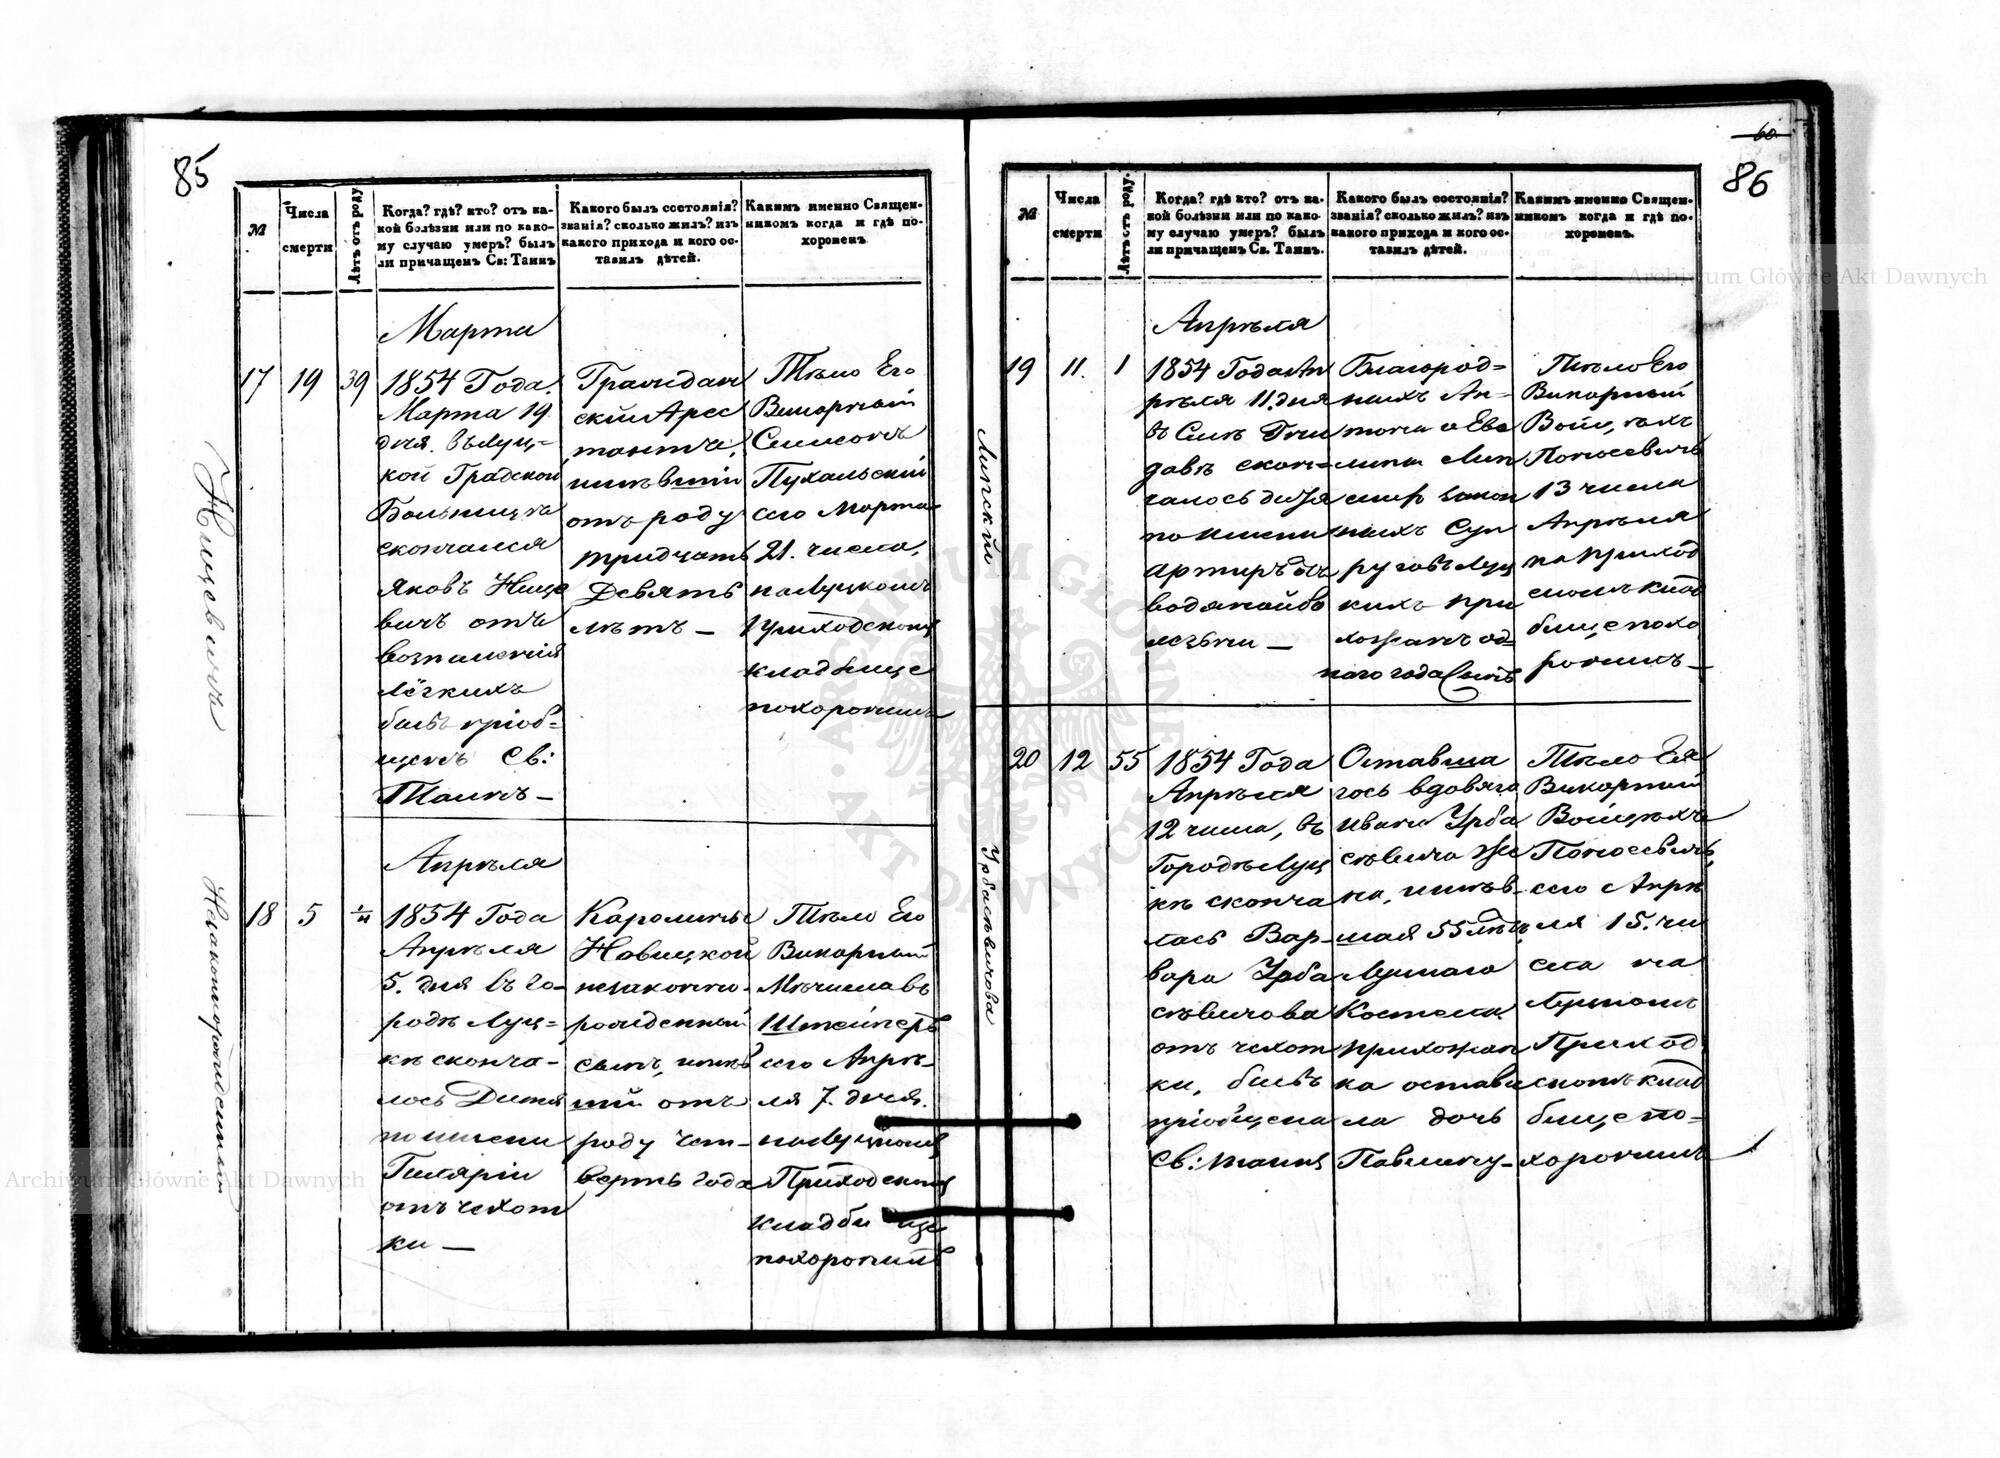 85
№
Числа
смерти
Лѣтъ отъ роду
Когда? гдѣ? кто? отъ ка-
кой болѣзни или по како-
му случаю умеръ? былъ
ли причащенъ Св: Таинъ
Какого былъ состоянія?
званія? сколько жилъ? изъ
какого прихода и кого ос-
тавилъ дѣтей.
Какимъ именно Священ-
никомъ когда и гдѣ по-
хороненъ.
Нищевичъ
Марта
17
19
39
1854 Года.
Марта 19
дня. въ Луц-
кой Градской
Больницѣ
скончался
Яковъ Нище
вичъ отъ
воспаленія
лёгкихъ
былъ пріоб-
щенъ Св:
Таинъ —
Граждан
скій Арес
тантъ,
имѣвшій
отъ роду
тридцать
Девять
лѣтъ —
Тѣло Его
Викарный
Симонъ
Пухальскій
сего Марта
21. числа,
на Луцкомъ
Приходскомъ
кладбище
похоронилъ
Незаконнорожденный
Апрѣля
18
5
1/4
1854 Года
Апрѣля
5. дня въ го-
родѣ Луц-
кѣ сконча-
лось Дитя
по имени
Гилярій
отъ чехот
ки —
Каролины
Новицкой
незаконно-
рожденный
сынъ, имѣв
шій отъ
роду чет-
верть года
Тѣло Его
Викарный
Мѣчиславъ
Штейнеръ
сего Апрѣ-
ля 7. дня.
на Луцкомъ
Приходскомъ
кладбище
похоронилъ
60
86
№
Числа
смерти
Лѣтъ отъ роду.
Когда? гдѣ кто? отъ ка-
кой болѣзни или по како-
му случаю умеръ? былъ
ли причащенъ Св. Таинъ.
Какого былъ состоянія?
званія? сколько жилъ? изъ
какого прихода и кого ос-
тавилъ дѣтей.
Какимъ именно Священ-
никомъ когда и гдѣ по-
хороненъ.
Липскій
Апрѣля
19
11.
1
1854 Года Ап
рѣля 11. дня
въ Гни
давѣ скон-
чалось дитя
по имени
Артиръ отъ
водяной бо
лезни —
Благород-
ныхъ Ан-
тона и Еве
лины Лип
закон
ныхъ Суп
руговъ Луц
кихъ При
хожанъ од-
ного года Сынъ
Тѣло Его
Викарный
Войцѣхъ
13 числа
Апрѣля
на Приход
скомъ клад
бище похо
ронилъ —
Урбасѣвичова
20
12
55
1854 Года
Апрѣля
12 числа, въ
Городѣ Луц
кѣ сконча
лась Вар-
вара Урба
сѣвичова
отъ чехот
ки, былъ
пріобщена
Св: таинъ
Оставша
гось вдовяго
Ивана Урба
сѣвича Же
на, имѣв-
шая 55 лѣтъ,
Луцкаго
Костела
прихожан
ка остави
ла дочь
Павлину —
Тѣло Ея
Викарный
Войцѣхъ
сего Апрѣ
ля 15. чи
сла на
Луцкомъ
Приход
скомъ клад
бище по-
хоронилъ
Archiwum Główne Akt Dawnych
Archiwum Główne Akt Dawnych
ARCHIWUM GŁÓWNE AKT DAWNYCH